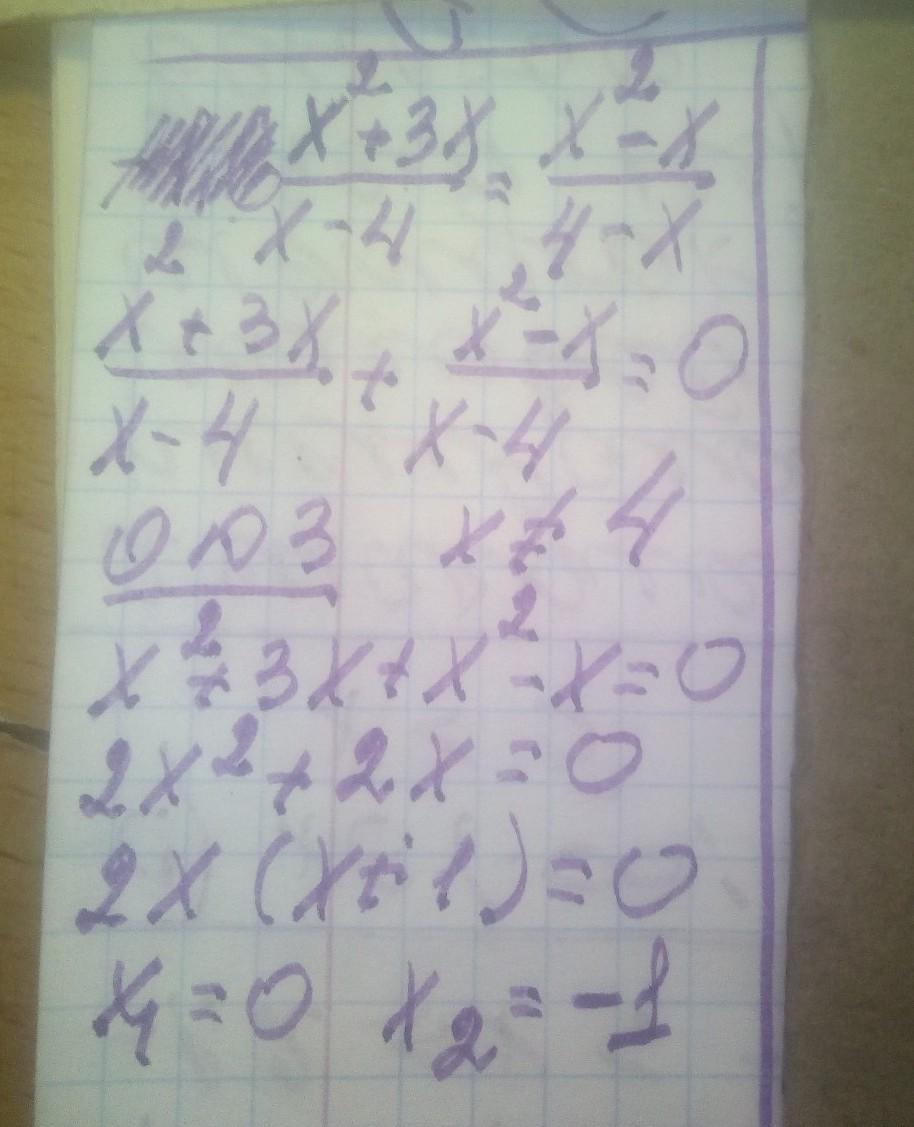 x²+3x/x-4 = x²-x/4-x
x²+3x/x-4 + x²-x/x-4 = 0
ООЗ x≠4
x²+3x+x²-x=0
2x²+2x=0
2x(x+1)=0
x₁=0 x₂=-1